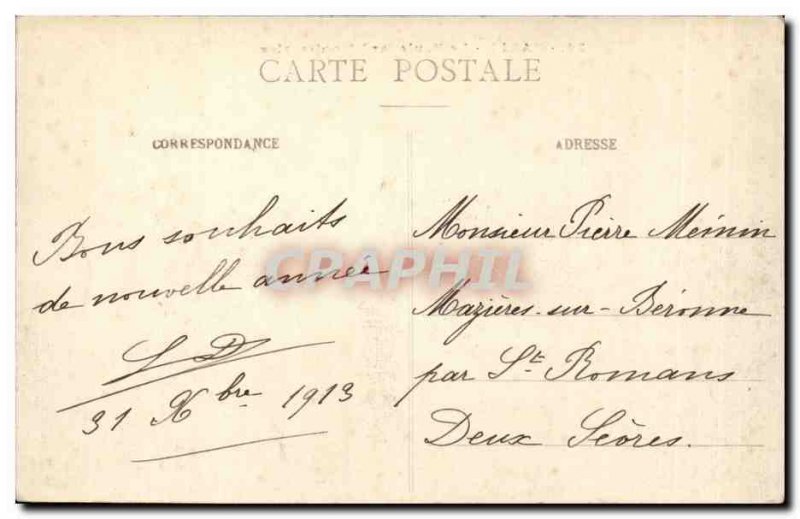 CARTE POSTALE
CORRESPONDANCE
ADRESSE
Bons souhaits
de nouvelle année
31 Xbre 1913
Monsieur Pierre Meinin
Mazières-sur-Béronne
par St. Romans
Deux Sèvres.
CPAPHIL